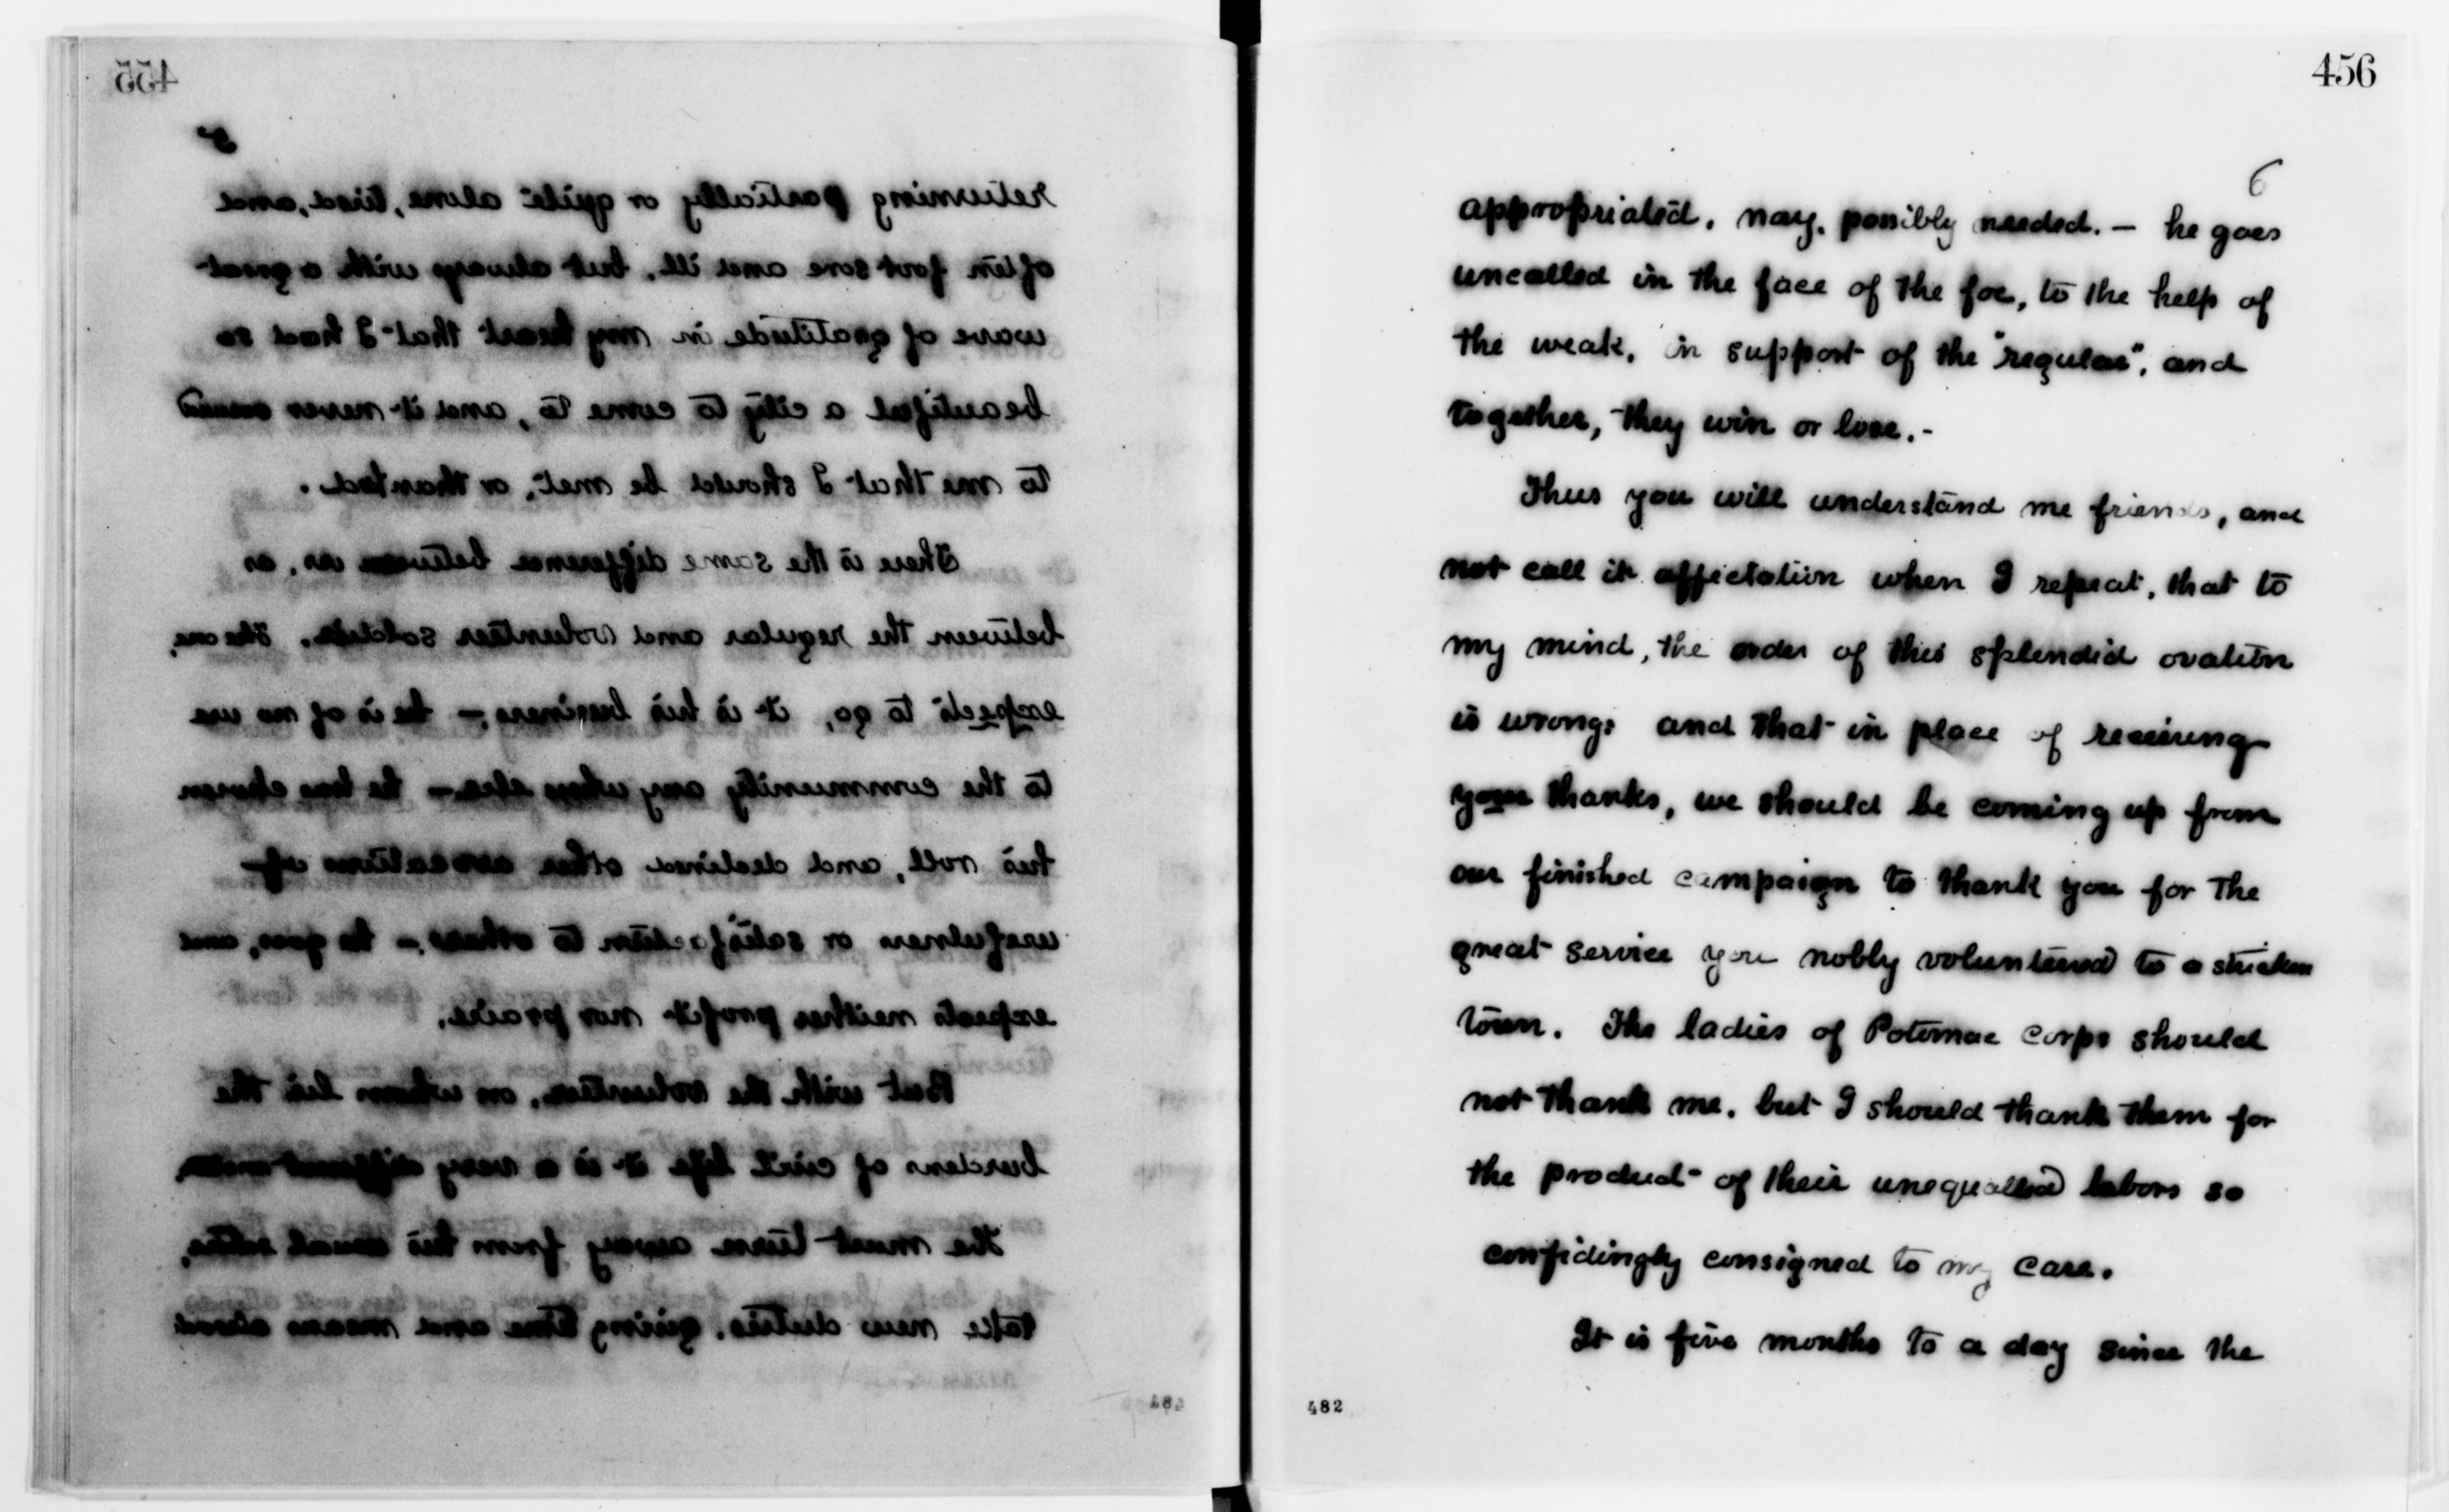 455
5
returning partially or quite alone, tired, and
often foot sore and ill, but always with a great
wave of gratitude in my heart that I had so
beautiful a city to come to, and it never
to me that I should be met, or thanked.
There is the same difference between us, as
between the regular and volunteer soldier. The one,
expects to go, it is his business; – he is of no use
to the community any where else – he has chosen
his roll, and declined other avocations of
usefulness or satisfaction to others. – he goes, and
expects neither profit nor praise.
But with the volunteer, on whom lies the
burdens of civil life it is a very different
He must turn away from his usual
take new duties, giving time and means
481
456
6
appropriated, nay, possibly needed. — he goes
uncalled in the face of the foe, to the help of
the weak, in support of the "regular", and
together, they win or lose. -
Thus you will understand me friends, and
not call it affectation when I repeat, that to
my mind, the order of this splendid ovation
is wrong; and that in place of receiving
your thanks, we should be coming up from
our finished campaign to thank you for the
great service you nobly volunteered to a stricken
town. The ladies of Potomac Corps should
not thank me, but I should thank them for
the product of their unequalled labors so
confidingly consigned to my care.
It is five months to a day since the
482